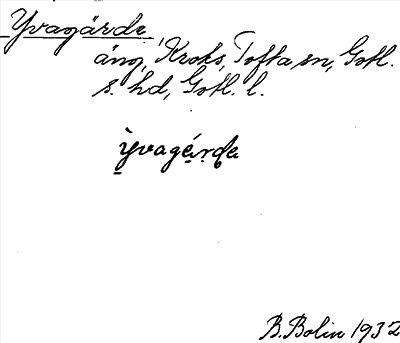 Yvagärde,
äng, Kroks, Tofta sn, Gotl.
s. hd, Gotl. l.
ỳvagárde
B. Bolin 1932